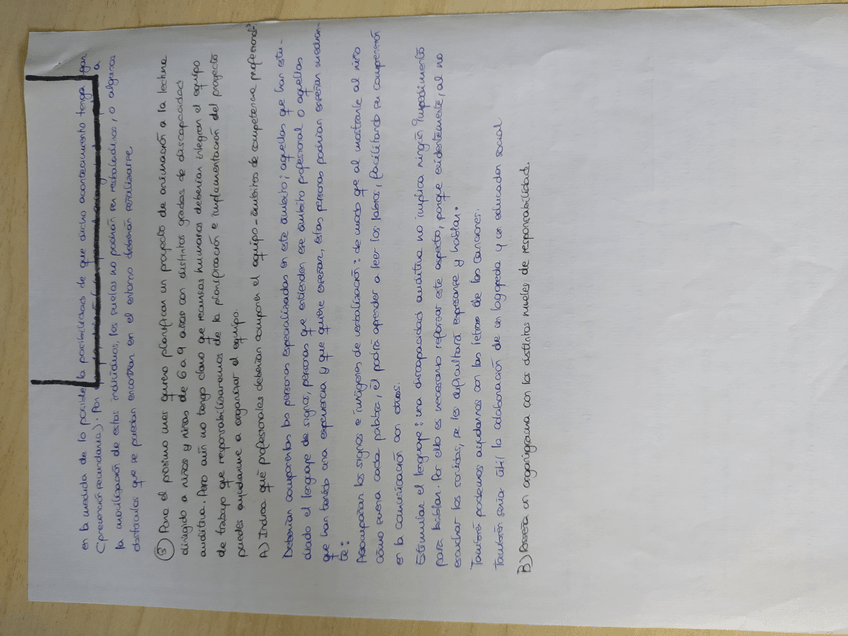 en la medida de lo posible la posibilidades de que dicho acontecimiento tenga lugar
(prevención secundaria). Por
la movilización de estos individuos, los suelos no podrán ser resbaladizos, o algunos
obstáculos que se puedan encontrar en el entorno deberán señalizarse.
③ Para el próximo mes quiero planificar un proyecto de animación a la lectura
dirigido a niños y niñas de 6 a 9 años con distintos grados de discapacidad
auditiva. Pero aún no tengo claro que recursos humanos deberían integrar el equipo
de trabajo que responsabilizaremos de la planificación e implementación del proyecto
puedes ayudarme a organizar el equipo.
A) Indica qué profesionales deberían componer el equipo - ámbitos de competencia profesional?
Deberían componerlas las personas especializadas en este ámbito; aquellas que han estu-
diado el lenguaje de signos, personas que entienden ese ámbito profesional o aquellas
que han tenido una experiencia y que quiere enseñar, estas personas podrían enseñar median-
te:
Acompañar los signos e imágenes de vocalización: de modo que al mostrarle al niño
cómo suena cada palabra, él podrá aprender a leer los labios, facilitando su comprensión
en la comunicación con otros.
Estimular el lenguaje: una discapacidad auditiva no implica ningún impedimento
para hablar. Por ello es necesario reforzar este aspecto, porque evidentemente, al no
escuchar los sonidos, se les dificultará expresarse y hablar.
También podemos ayudarnos con las letras de las canciones.
También sería útil la colaboración de un logopeda y un educador social
B) un organigrama con los distintos niveles de responsabilidad.